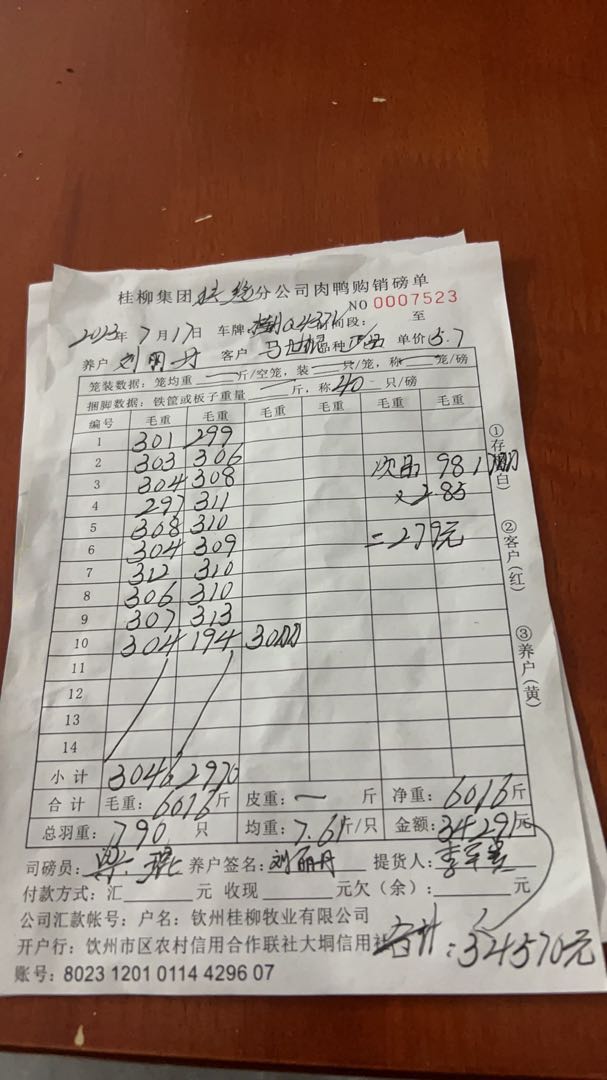 桂柳集团 分公司肉鸭购销磅单
NO 0007523
2023年7月17日 车牌 时间段: 至
养户 刘丽丹 客户 品种 正品 单价 5.7
笼装数据: 笼均重 斤/空笼, 装 只/笼, 称 笼/磅
捆脚数据: 铁筐或板子重量 斤, 称 40 只/磅
编号 毛重 毛重 毛重 毛重 毛重 毛重
1 301 299
2 303 306 次品 98斤
3 304 308 ×2.85
4 297 311
5 308 310 =279元
6 304 309
7 312 310
8 306 310
9 307 313
10 304 194
11
12
13
14
小计 3046 2970
合计 毛重: 6016斤 皮重: 一 斤 净重: 6016斤
总羽重: 790 只 均重: 7.61斤/只 金额: 34291元
司磅员: 养户签名: 刘丽丹 提货人:
付款方式: 汇 元 收现 元欠(余): 元
公司汇款帐号: 户名: 钦州桂柳牧业有限公司
开户行: 钦州市区农村信用合作联社大垌信用社
合计: 34570元
账号: 8023 1201 0114 4296 07
①存(白)
②客户(红)
③养户(黄)